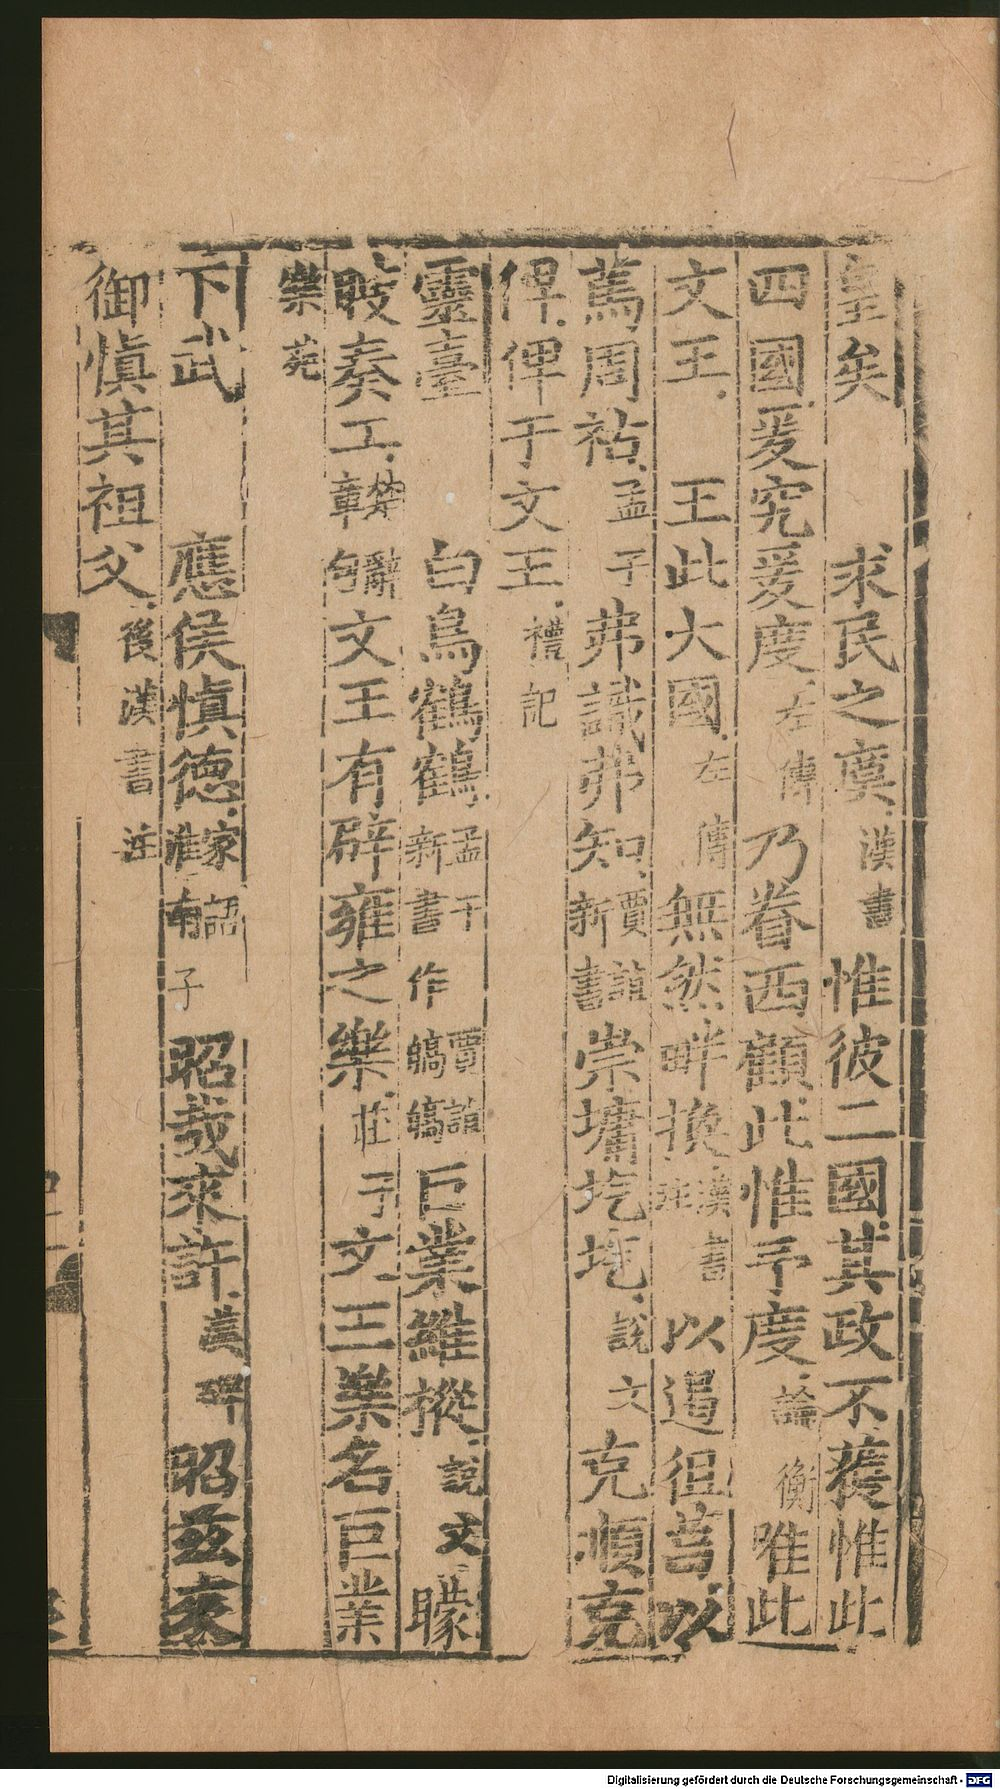 皇矣 求民之莫漢書 惟彼二國其政不獲惟此
四國爰究爰度左傳 乃眷西顧此惟予度論衡 唯此
文王 王此大國左傳 無然畔換漢書注 以遏徂莒以
篤周祜孟子 弗識弗知賈誼新書 崇墉圪圪說文 克順克
俾俾于文王禮記
靈臺 白鳥鶴鶴孟子新書作賈誼皜皜 巨業維樅說文 矇
瞍奏工楚辭章句 文王有辟雍之樂莊子 文王樂名巨業
崇苑
下武 應侯慎德家語淮南子 昭哉來許漢碑 昭茲來
御慎其祖父後漢書注
Digitalisierung gefördert durch die Deutsche Forschungsgemeinschaft - DFG